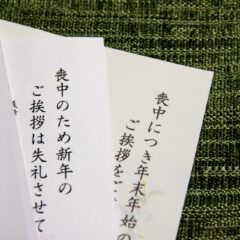 喪中のため新年の
ご挨拶は失礼させて
喪中につき年末年始の
ご挨拶をご